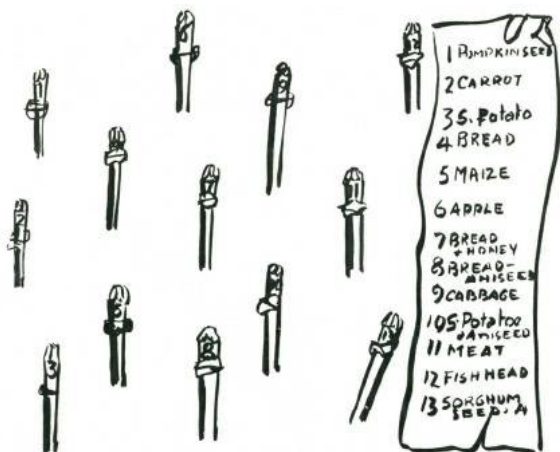 1 PUMPKINSEED
2 CARROT
3 S. Potato
4 BREAD
5 MAIZE
6 APPLE
7 BREAD
+ HONEY
8 BREAD-
ANISEED
9 CABBAGE
10 S. Potatoe
+ ANISEED
11 MEAT
12 FISH HEAD
13 SORGHUM
SEED. A
1
2
3
5
6
7
8
9
11
12